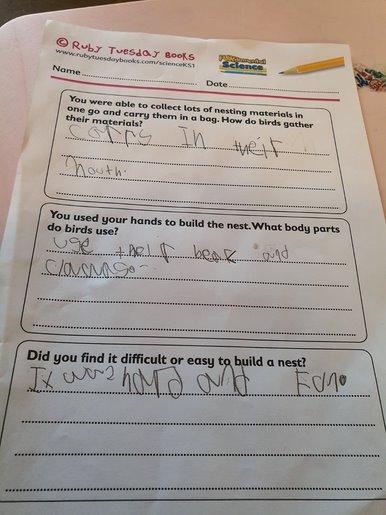 © Ruby Tuesday Books
www.rubytuesdaybooks.com/scienceKS1
FUNdamental
Science
Name
Date
You were able to collect lots of nesting materials in
one go and carry them in a bag. How do birds gather
their materials?
carrs In their
mouth.
You used your hands to build the nest. What body parts
do birds use?
use their beak and
Did you find it difficult or easy to build a nest?
It was hard and